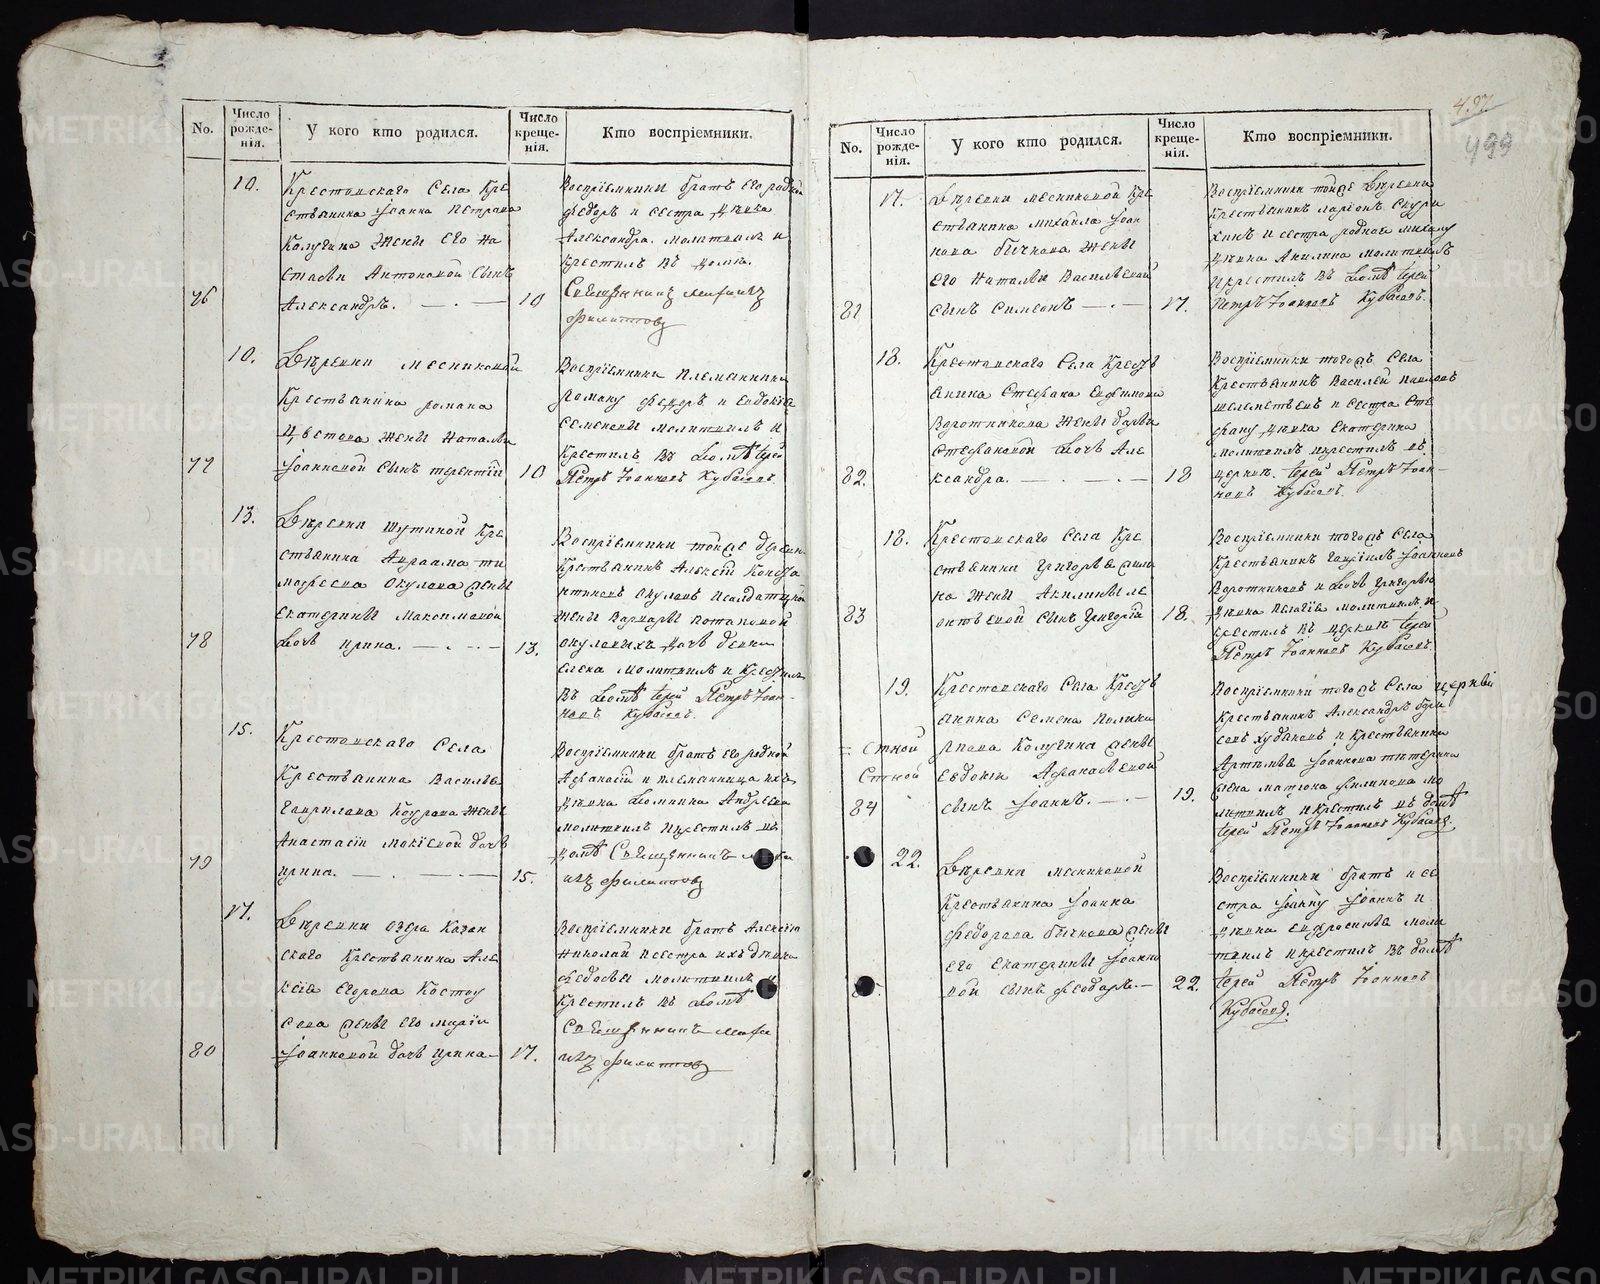 No.
Число рожде-нія.
У кого кто родился.
Число креще-нія.
Кто воспріемники.
10.
Крестовскаго Села Кре
стьянина Іоанна Петрова
Калугина жены его На
стасьи Антоновой Сынъ
76
Александръ.
10
Воспріемники братъ его родной
Федоръ и сестра Девка
Александра. молитвилъ и
крестилъ въ домѣ.
Священникъ
Филипповъ
10.
Деревни Месниковой
Крестьянина Романа
Цветова жены Натальи
77
Іоанновой Сынъ терентій
10
Воспріемники племянники
Роману Федоръ и Евдокія
Семеновы молитвилъ и
крестилъ въ Домѣ Іерей
Петръ Іоанновъ Кубасовъ.
13.
Деревни Шутиной Кре
стьянина Авраама ти
мофеева Окулова жены
Екатерины Максимовой
78
Дочь Ирина.
13.
Воспріемники тойже деревни
Крестьянинъ Алексій Конста
нтиновъ Окуловъ
жены Варвары Потаповой
Окуловыхъ Дочь девка
Елена молитвилъ и крестилъ
въ Домѣ Іерей Петръ Іоан-
новъ Кубасовъ.
15.
Крестовскаго Села
Крестьянина Василья
Гаврилова жены
Анастасіи Мокіевой дочь
79
Ирина.
15.
Воспріемники братъ его родной
Афанасій и племянница ихъ
девка Домника Андреева
молитвилъ и крестилъ въ
домѣ Священникъ
Филипповъ
17.
Деревни Озера Казан
скаго Крестьянина Але
ксія Егорова Костоу
сова жены его Маріи
80
Іоанновой дочь Ирина
17.
Воспріемники братъ Алексія
Николай и сестра ихъ девка
Федосья молитвилъ и
крестилъ въ Домѣ
Священникъ
Филипповъ
497
499
No.
Число рожде-нія.
У кого кто родился.
Число креще-нія.
Кто воспріемники.
17.
Деревни Месниковой Кре
стьянина Михайла Іоан
нова Бычкова жены
его Натальи Васильевой
81
сынъ Симеонъ
17.
Воспріемники тойже Деревни
Крестьянинъ Ларіонъ Скури
хинъ и сестра родной Михаилу
девка Акилина молитвилъ
и крестилъ въ Домѣ Іерей
Петръ Іоанновъ Кубасовъ.
18.
Крестовскаго Села Кресть
янина Стефана Евфимова
Воротникова жены Дарьи
Стефановой Дочь Але
82.
ксандра.
18
Воспріемники тогожъ Села
Крестьянинъ Василей Павловъ
Шелеметьевъ и сестра Сте
фану девка Екатерина
молитвилъ и крестилъ въ
церкви. Іерей Петръ Іоан-
новъ Кубасовъ.
18.
Крестовскаго Села Кре
стьянина Григорья
на жены Акилины Ле
83
онтьевой сынъ Григорій
18.
Воспріемники тогожъ Села
Крестьянинъ Гавріилъ Іоанновъ
Воротниковъ и Дочь Григорью
девка Пелагія молитвилъ и
крестилъ въ церкви Іерей
Петръ Іоанновъ Кубасовъ.
19.
Крестовскаго Села Кресть
янина Семена Полика
рпова Калугина жены
Евдокіи Афанасьевой
84
сынъ Іоаннъ.
19.
Воспріемники тогожъ Села
Крестьянинъ Александръ Бори
совъ Худяковъ и Крестьянина
Артемья Іоаннова
жена Матрона Филипова мо
литвилъ и крестилъ въ домѣ
Іерей Петръ Іоанновъ Кубасовъ.
22.
Деревни Месниковой
Крестьянина Іоанна
Федорова Бычкова жены
его Екатерины Іоанно
вой сынъ Феодоръ
22.
Воспріемники братъ и се
стра Іоанну Іоаннъ и
девка Евфросинья моли
твилъ и крестилъ въ домѣ
Іерей Петръ Іоанновъ
Кубасовъ.
METRIKI.GASO-URAL.RU